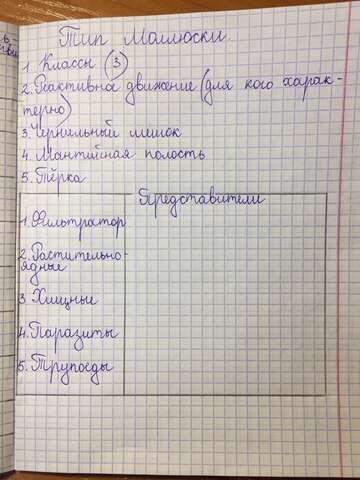 Тип Моллюски
1. Классы (3)
2. Реактивное движение (для кого харак-
терно)
3. Чернильный мешок
4. Мантийная полость
5. Тёрка
Представители
1. Фильтратор
2. Растительно-
ядные
3 Хищные
4. Паразиты
5. Трупоеды